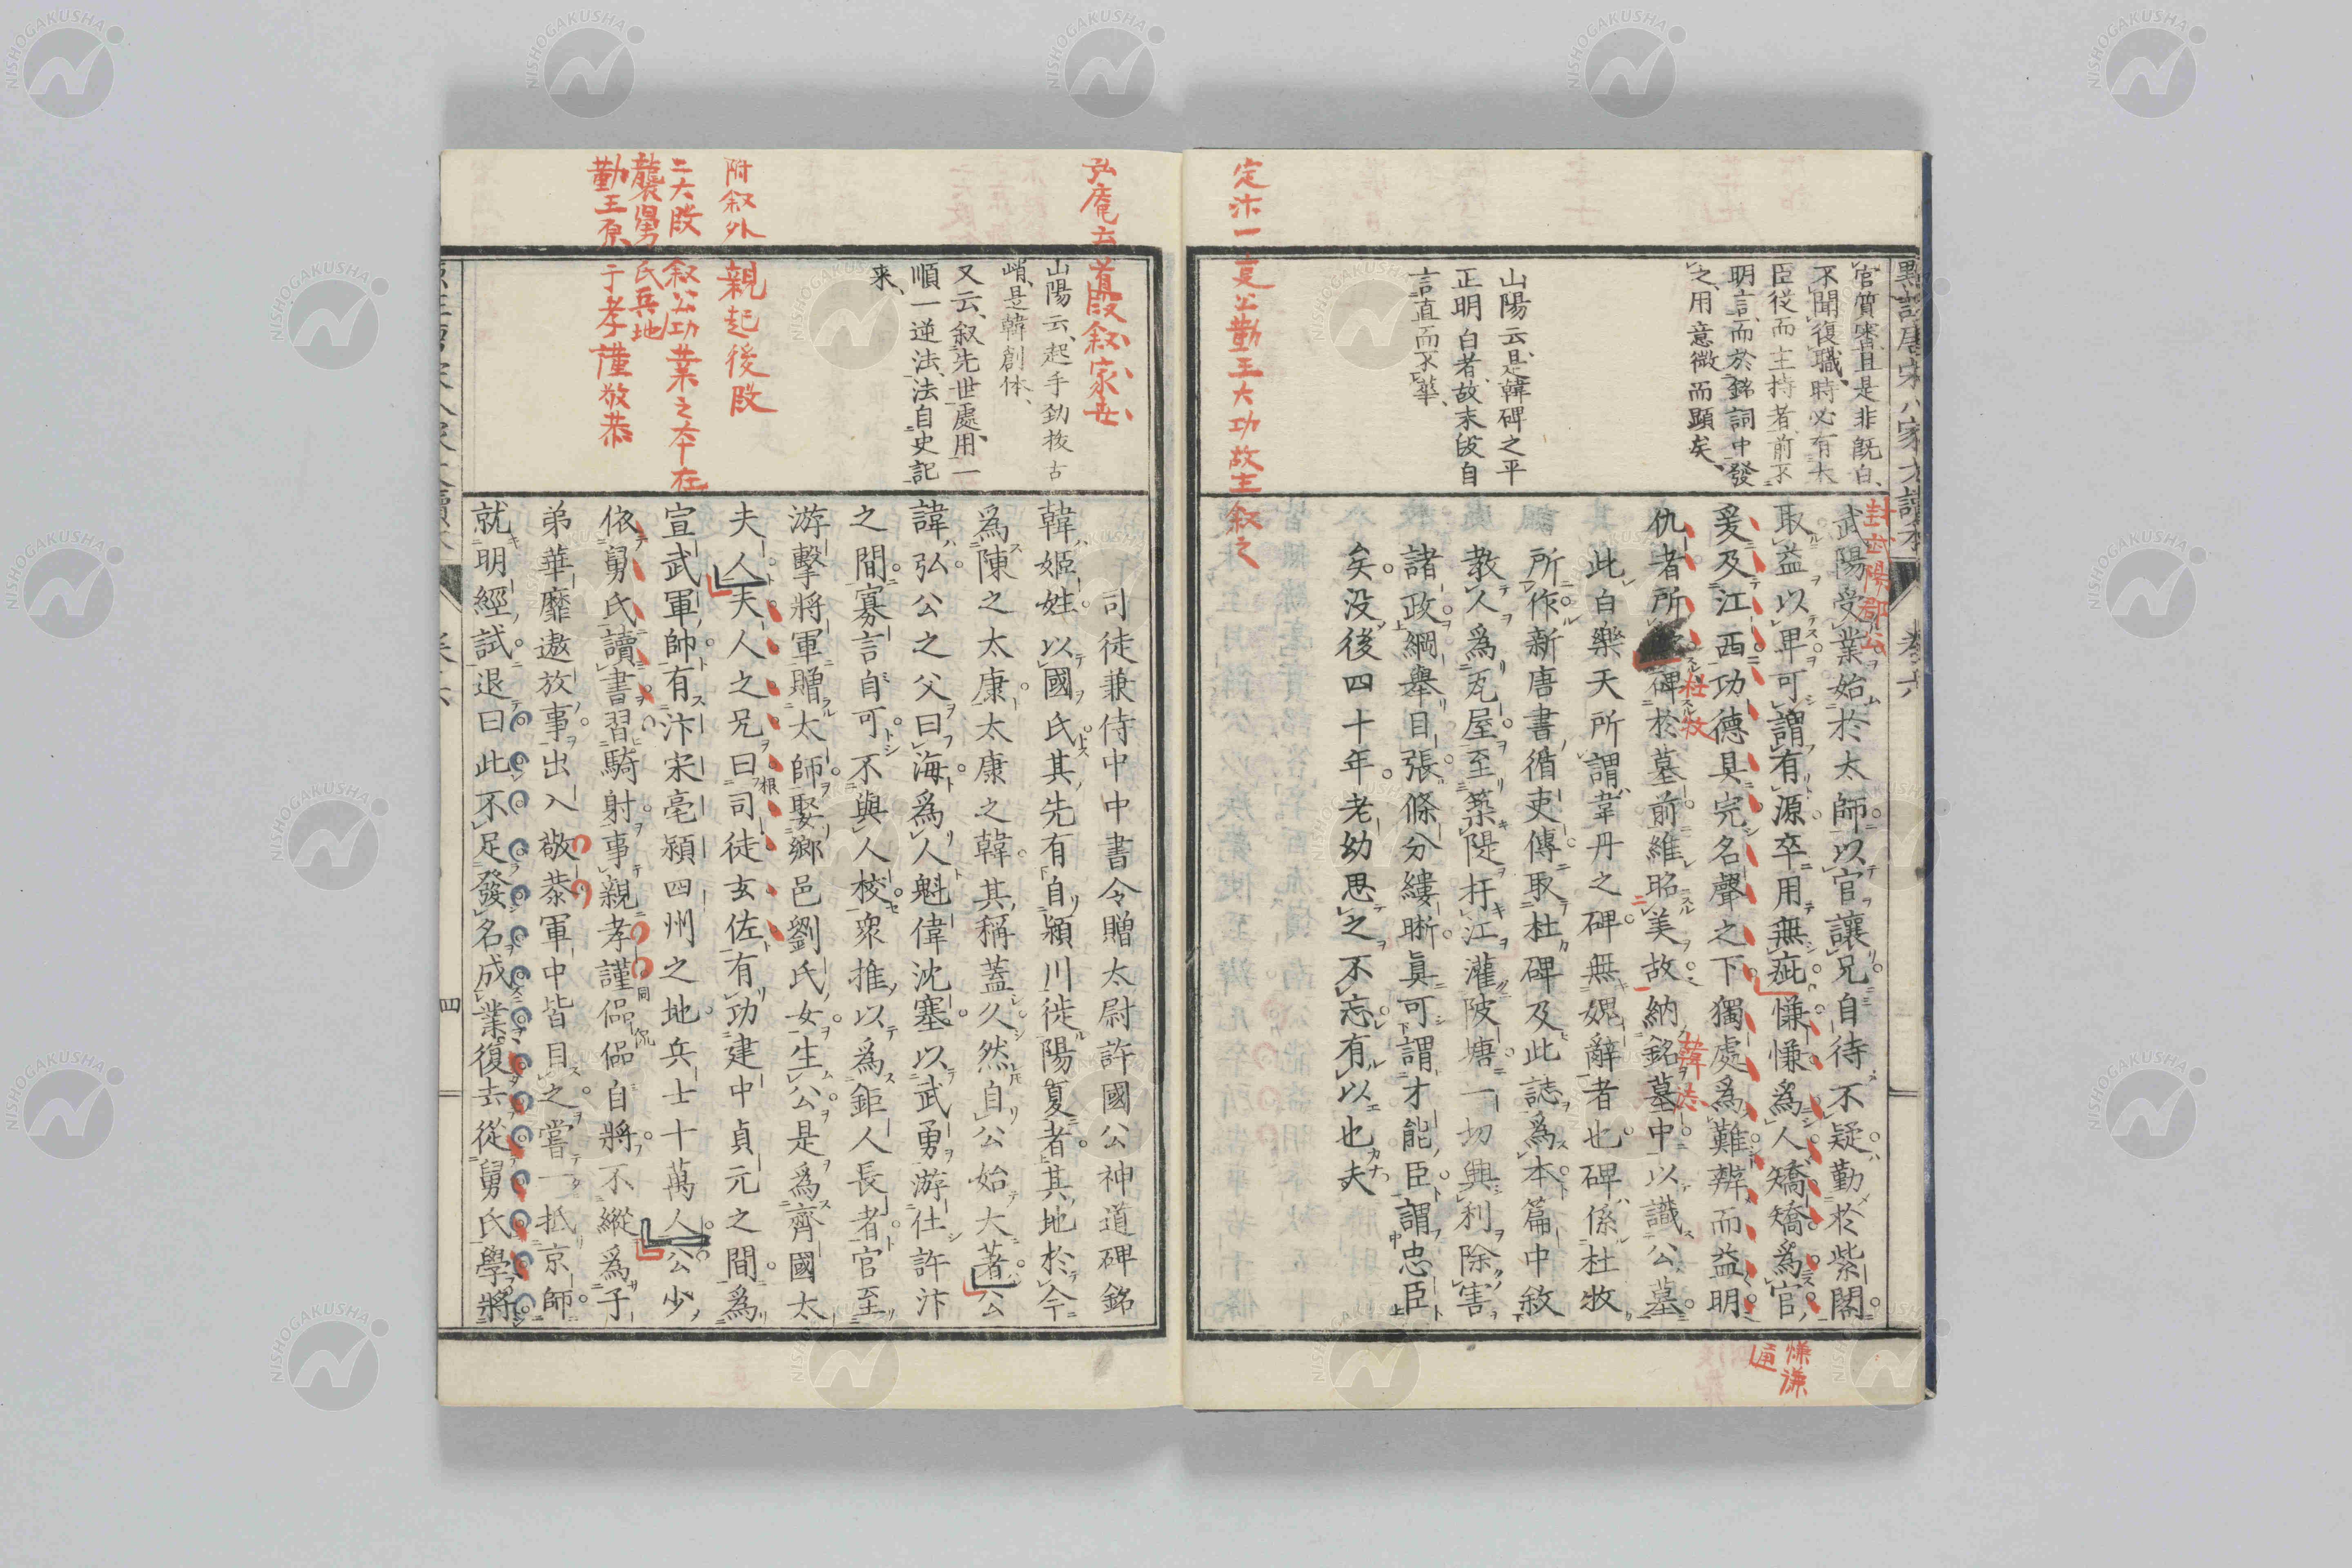 官質審且是非既白、
不聞復職、時必有大
臣從而主持者、前不
明言、而於銘詞中發
之、用意微而顯矣、
山陽云、是韓碑之平
正明白者、故末段自
言直而不華、
定汴一更公勤王大功故主叙之
武陽受業始於太師以官讓兄自待不疑勤於紫閣
取益以卑可謂有源卒用無疵慊慊爲人矯矯爲官
爰及江西功德具完名聲之下獨處爲難辨而益明
仇者所 碑於墓前維昭美故納銘墓中以識公墓
此白樂天所謂韋丹之碑無媿辭者也碑係杜牧
所作新唐書循吏傳取杜碑及此誌爲本篇中敘
教人爲瓦屋至築隄扞江灌陂塘一切興利除害
諸政綱舉目張條分縷晰眞可謂才能臣謂忠臣
矣没後四十年老幼思之不忘有以也夫
杜牧
卷六
弘庵云
叙家世
山陽云、起手勁拔古
峭、是韓創体、
又云、叙先世處、用一
順一逆法、法自史記
来、
附叙外親起後段
二大段叙公功業之本在
襲舅氏兵地
勤王原于孝謹敬恭
司徒兼侍中中書令贈太尉許國公神道碑銘
韓姬姓以國氏其先有自潁川徙陽夏者其地於今
爲陳之太康太康之韓其稱蓋久然自公始大著公
諱弘公之父曰海爲人魁偉沈塞以武勇游仕許汴
之間寡言自可不與人校衆推以爲鉅人長者官至
游擊將軍贈太師娶鄉邑劉氏女生公是爲齊國太
夫人夫人之兄曰司徒玄佐有功建中貞元之間爲
宣武軍帥有汴宋亳潁四州之地兵士十萬人公少
依舅氏讀書習騎射事親孝謹偘偘自將不縱爲子
弟華靡遨放事出入敬恭軍中皆目之嘗一抵京師
就明經試退曰此不足發名成業復去從舅氏學將
四
NISHOGAKUSHA